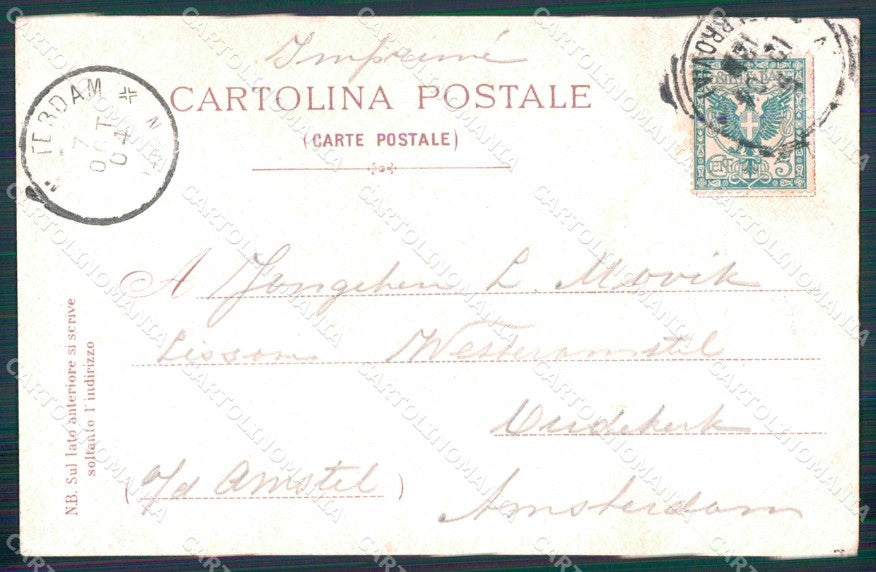 Imprimé
CARTOLINA POSTALE
(CARTE POSTALE)
TERDAM
7
OCT
04
N
5
A Jongeheer L. Movik
Lissone Westeramstel
Oudekerk
a/d Amstel)
Amsterdam
N.B. Sul lato anteriore si scrive
soltanto l'indirizzo
CARTOLINOMANIA